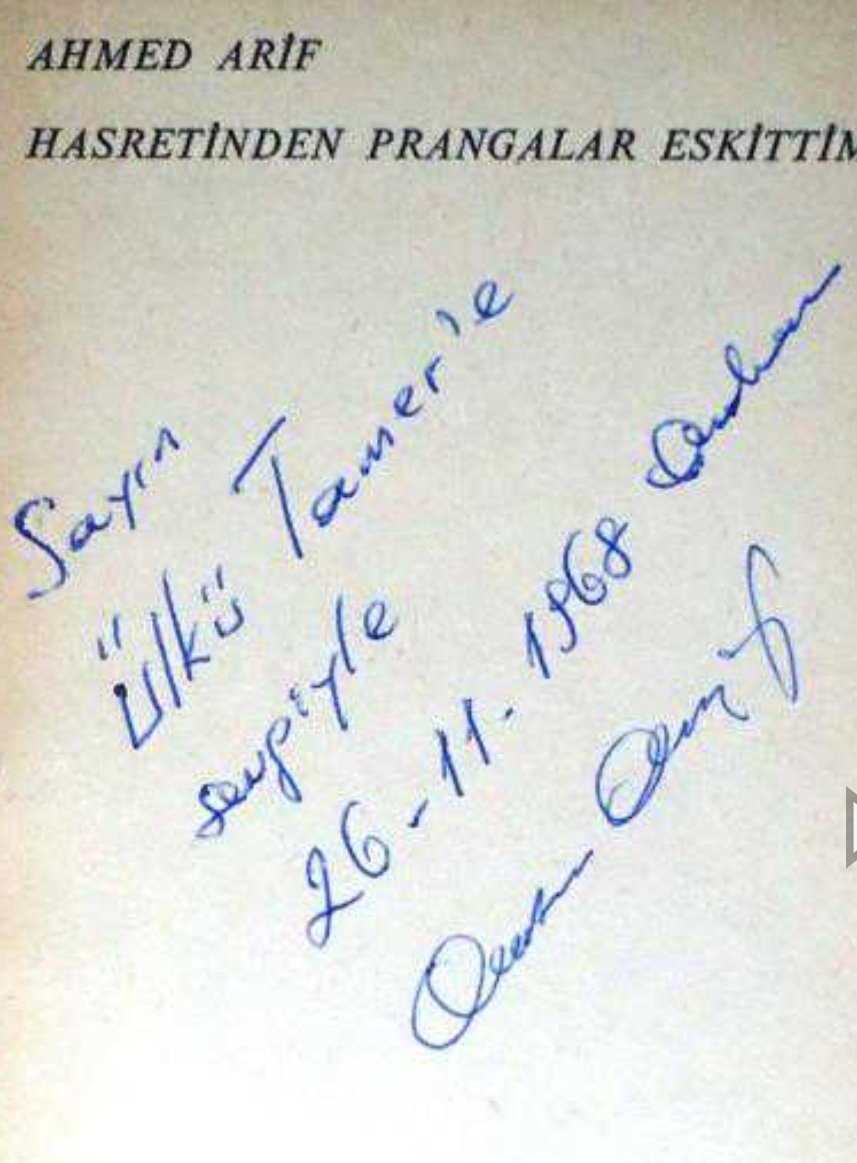 AHMED ARİF
HASRETİNDEN PRANGALAR ESKİTTİM
Sayın
Ülkü Tamer'e
sevgiyle
26-11-1968 Ankara